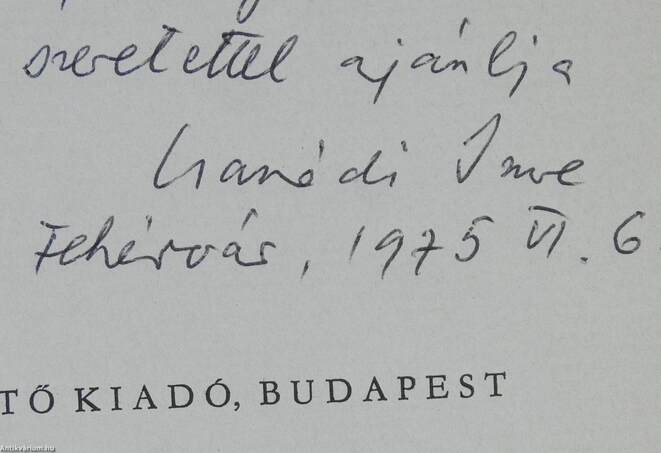 szeretettel ajánlja
Csanádi Imre
Fehérvár, 1975 VI. 6
TŐ KIADÓ, BUDAPEST
Antikvárium.hu